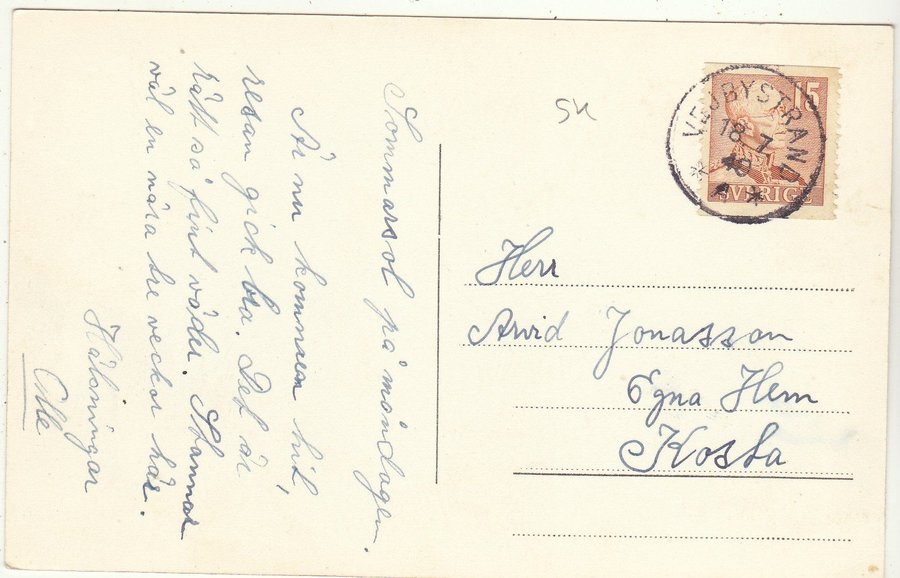 Sommarsol på måndagen.
Är nu kommen hit,
resan gick bra. Det är
rätt så fint väder. Stannar
väl en nära tre veckor här.
Hälsningar
5K
15
VEJBYSTRAND
18 7
SVERIGE
Herr
Arvid Jonasson
Egna Hem
Kosta